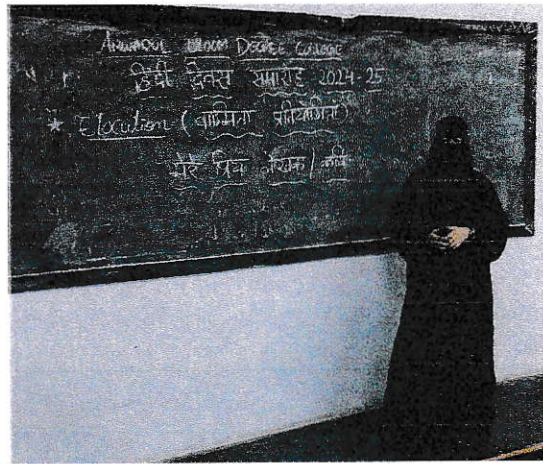 Anwarul Uloom Degree College
हिंदी दिवस समारोह 2024-25
* Elocution (वाग्मिता प्रतियोगिता)
मेरे प्रिय लेखक / कवि